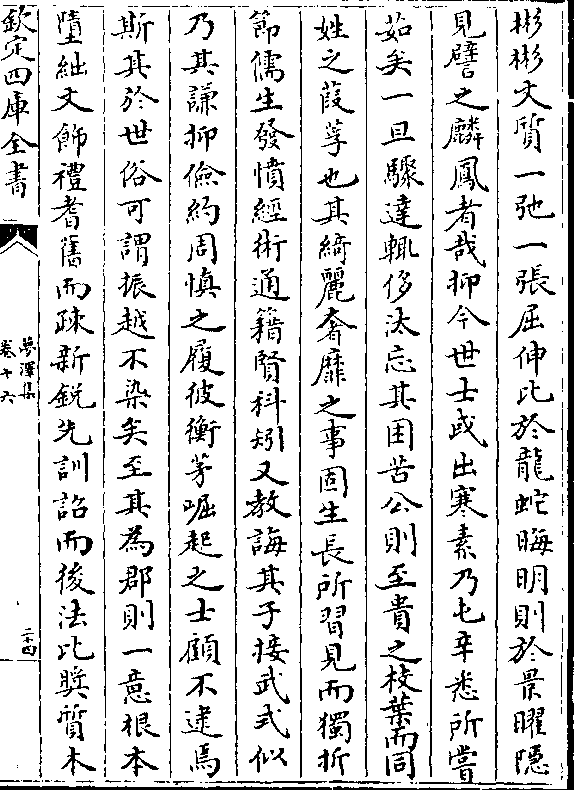 彬彬文質一弛一張屈伸比於龍蛇晦明則於景曜隱
見譬之麟鳳者哉抑今世士或出寒素乃屯辛悉所嘗
茹矣一旦驟達輒侈汰忘其困苦公則至貴之枝葉而同
姓之葭莩也其綺麗奢靡之事固生長所習見而獨折
節儒生發憤經術通籍賢科矧又教誨其子接武式似
乃其謙抑儉約周慎之履彼衡茅崛起之士顧不逮焉
斯其於世俗可謂振越不染矣至其為郡則一意根本
墮絀文飾禮耆舊而疎新銳先訓詔而後法比獎質木
欽定四庫全書
夢澤集
卷十六
二十四